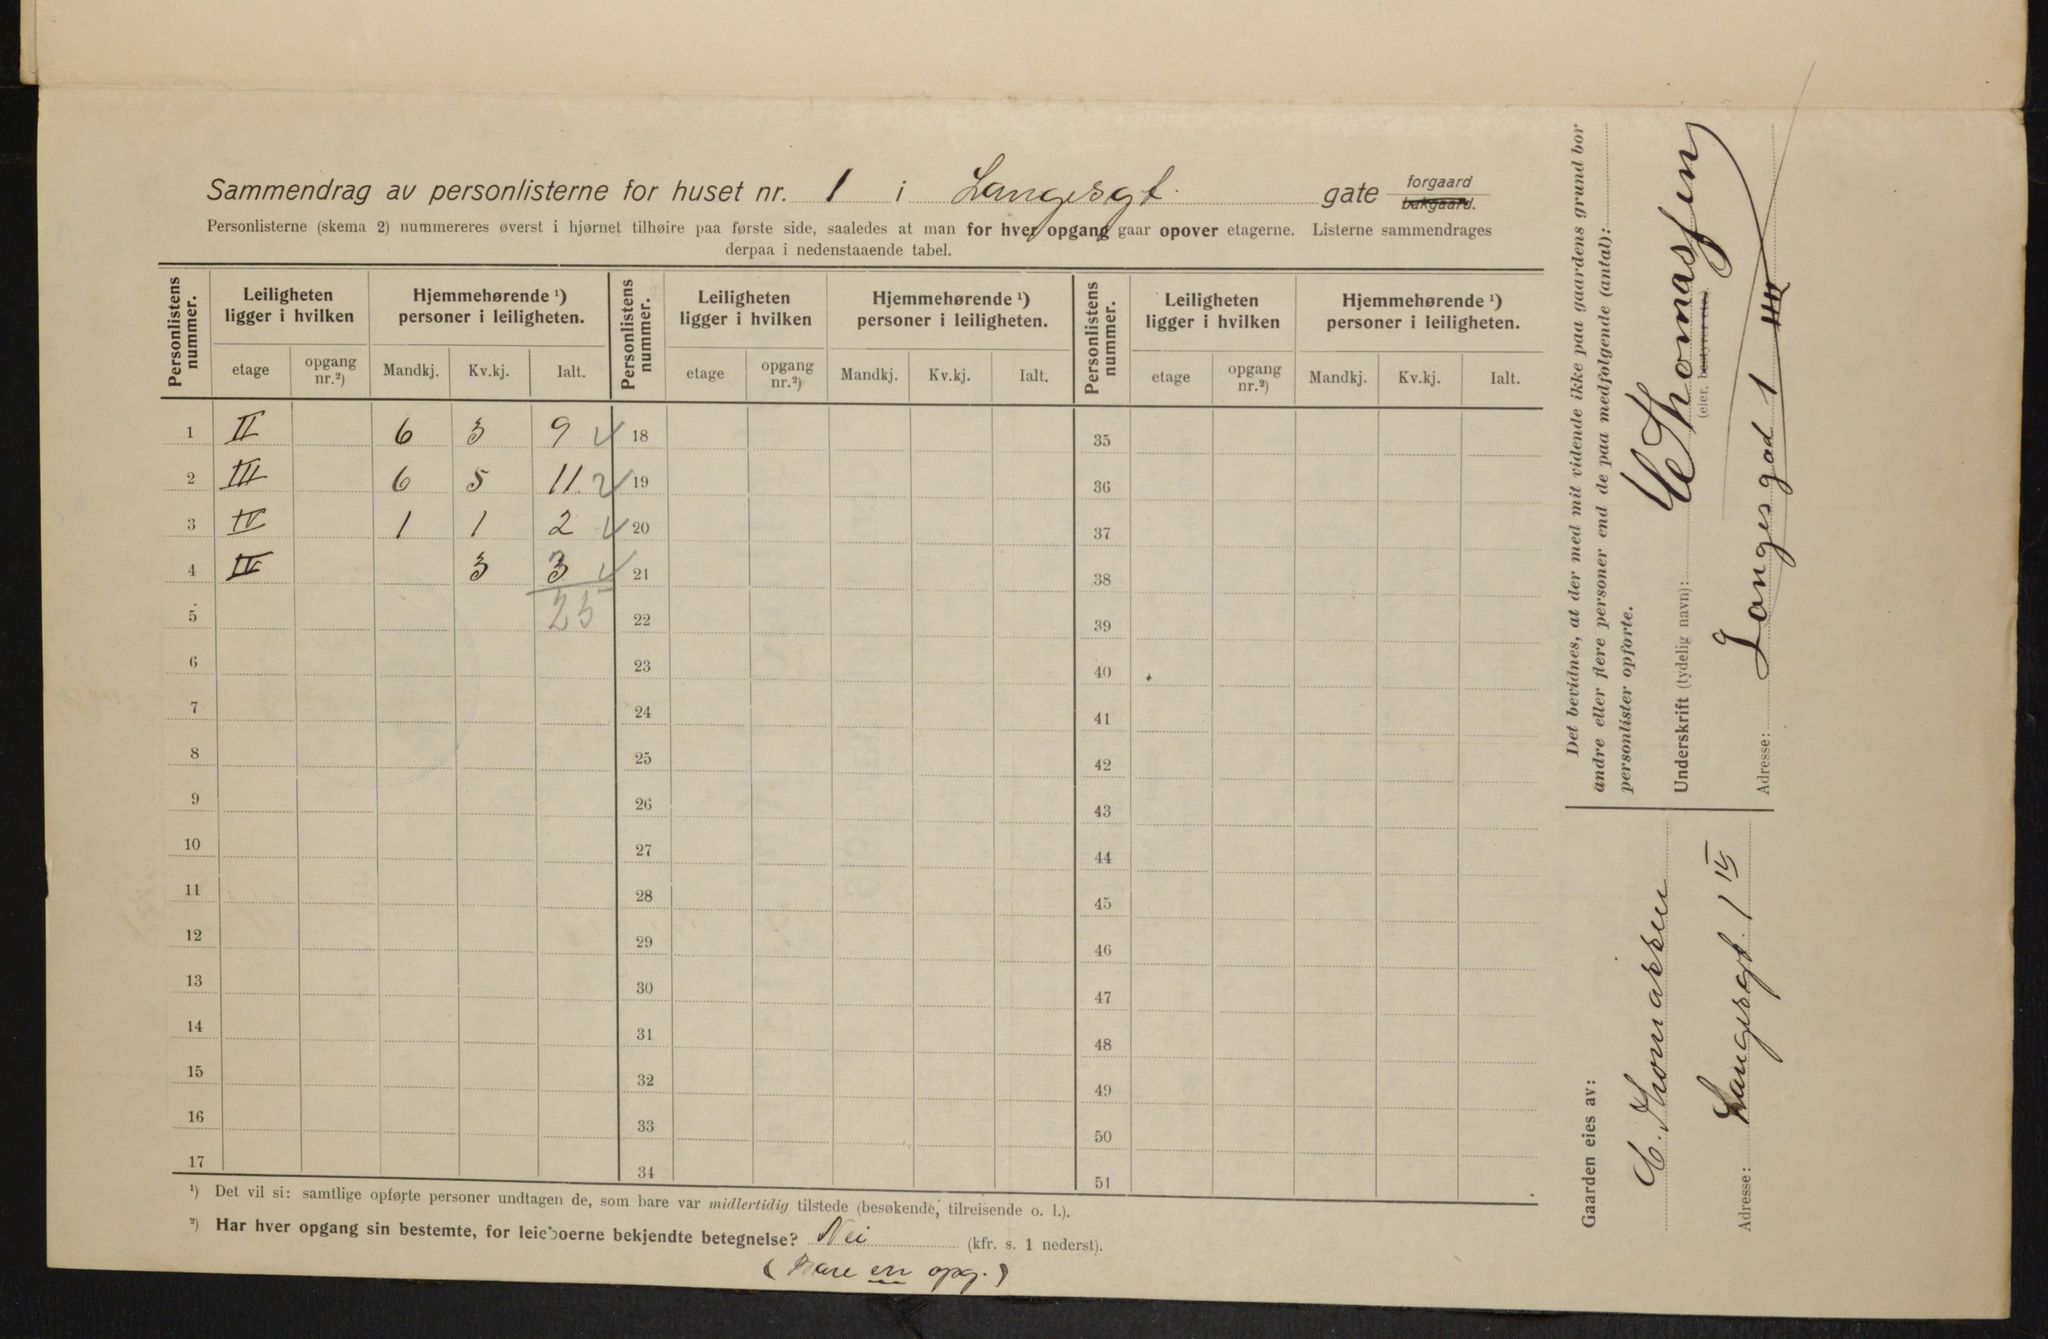 Sammendrag av personlisterne for huset nr. 1 i Langesgt. gate forgaard bakgaard.
Personlisterne (skema 2) nummereres øverst i hjørnet tilhøire paa første side, saaledes at man for hver opgang gaar opover etagerne. Listerne sammendrages
derpaa i nedenstaaende tabel.
Personlistens nummer. Leiligheten ligger i hvilken Hjemmehørende ¹) personer i leiligheten. Personlistens nummer. Leiligheten ligger i hvilken Hjemmehørende ¹) personer i leiligheten. Personlistens nummer. Leiligheten ligger i hvilken Hjemmehørende ¹) personer i leiligheten.
etage opgang nr.²) Mandkj. Kv.kj. Ialt. etage opgang nr.²) Mandkj. Kv.kj. Ialt. etage opgang nr.²) Mandkj. Kv.kj. Ialt.
1 II 6 3 9 18 35
2 III 6 5 11 19 36
3 IV 1 1 2 20 37
4 IV 3 3 21 38
5 25 22 39
6 23 40
7 24 41
8 25 42
9 26 43
10 27 44
11 28 45
12 29 46
13 30 47
14 31 48
15 32 49
16 33 50
17 34 51
¹) Det vil si: samtlige opførte personer undtagen de, som bare var midlertidig tilstede (besøkende, tilreisende o. l.).
²) Har hver opgang sin bestemte, for leieboerne bekjendte betegnelse? Nei (kfr. s. 1 nederst).
(Bare en opg.)
Det bevidnes, at der med mit vidende ikke paa gaardens grund bor
andre eller flere personer end de paa medfølgende (antal):
personlister opførte.
Underskrift (tydelig navn): C Thomassen
(eier, bestyrer etc.)
Adresse: Langesgad 1
Gaarden eies av:
C. Thomassen
Adresse: Langesgt. 1 IV